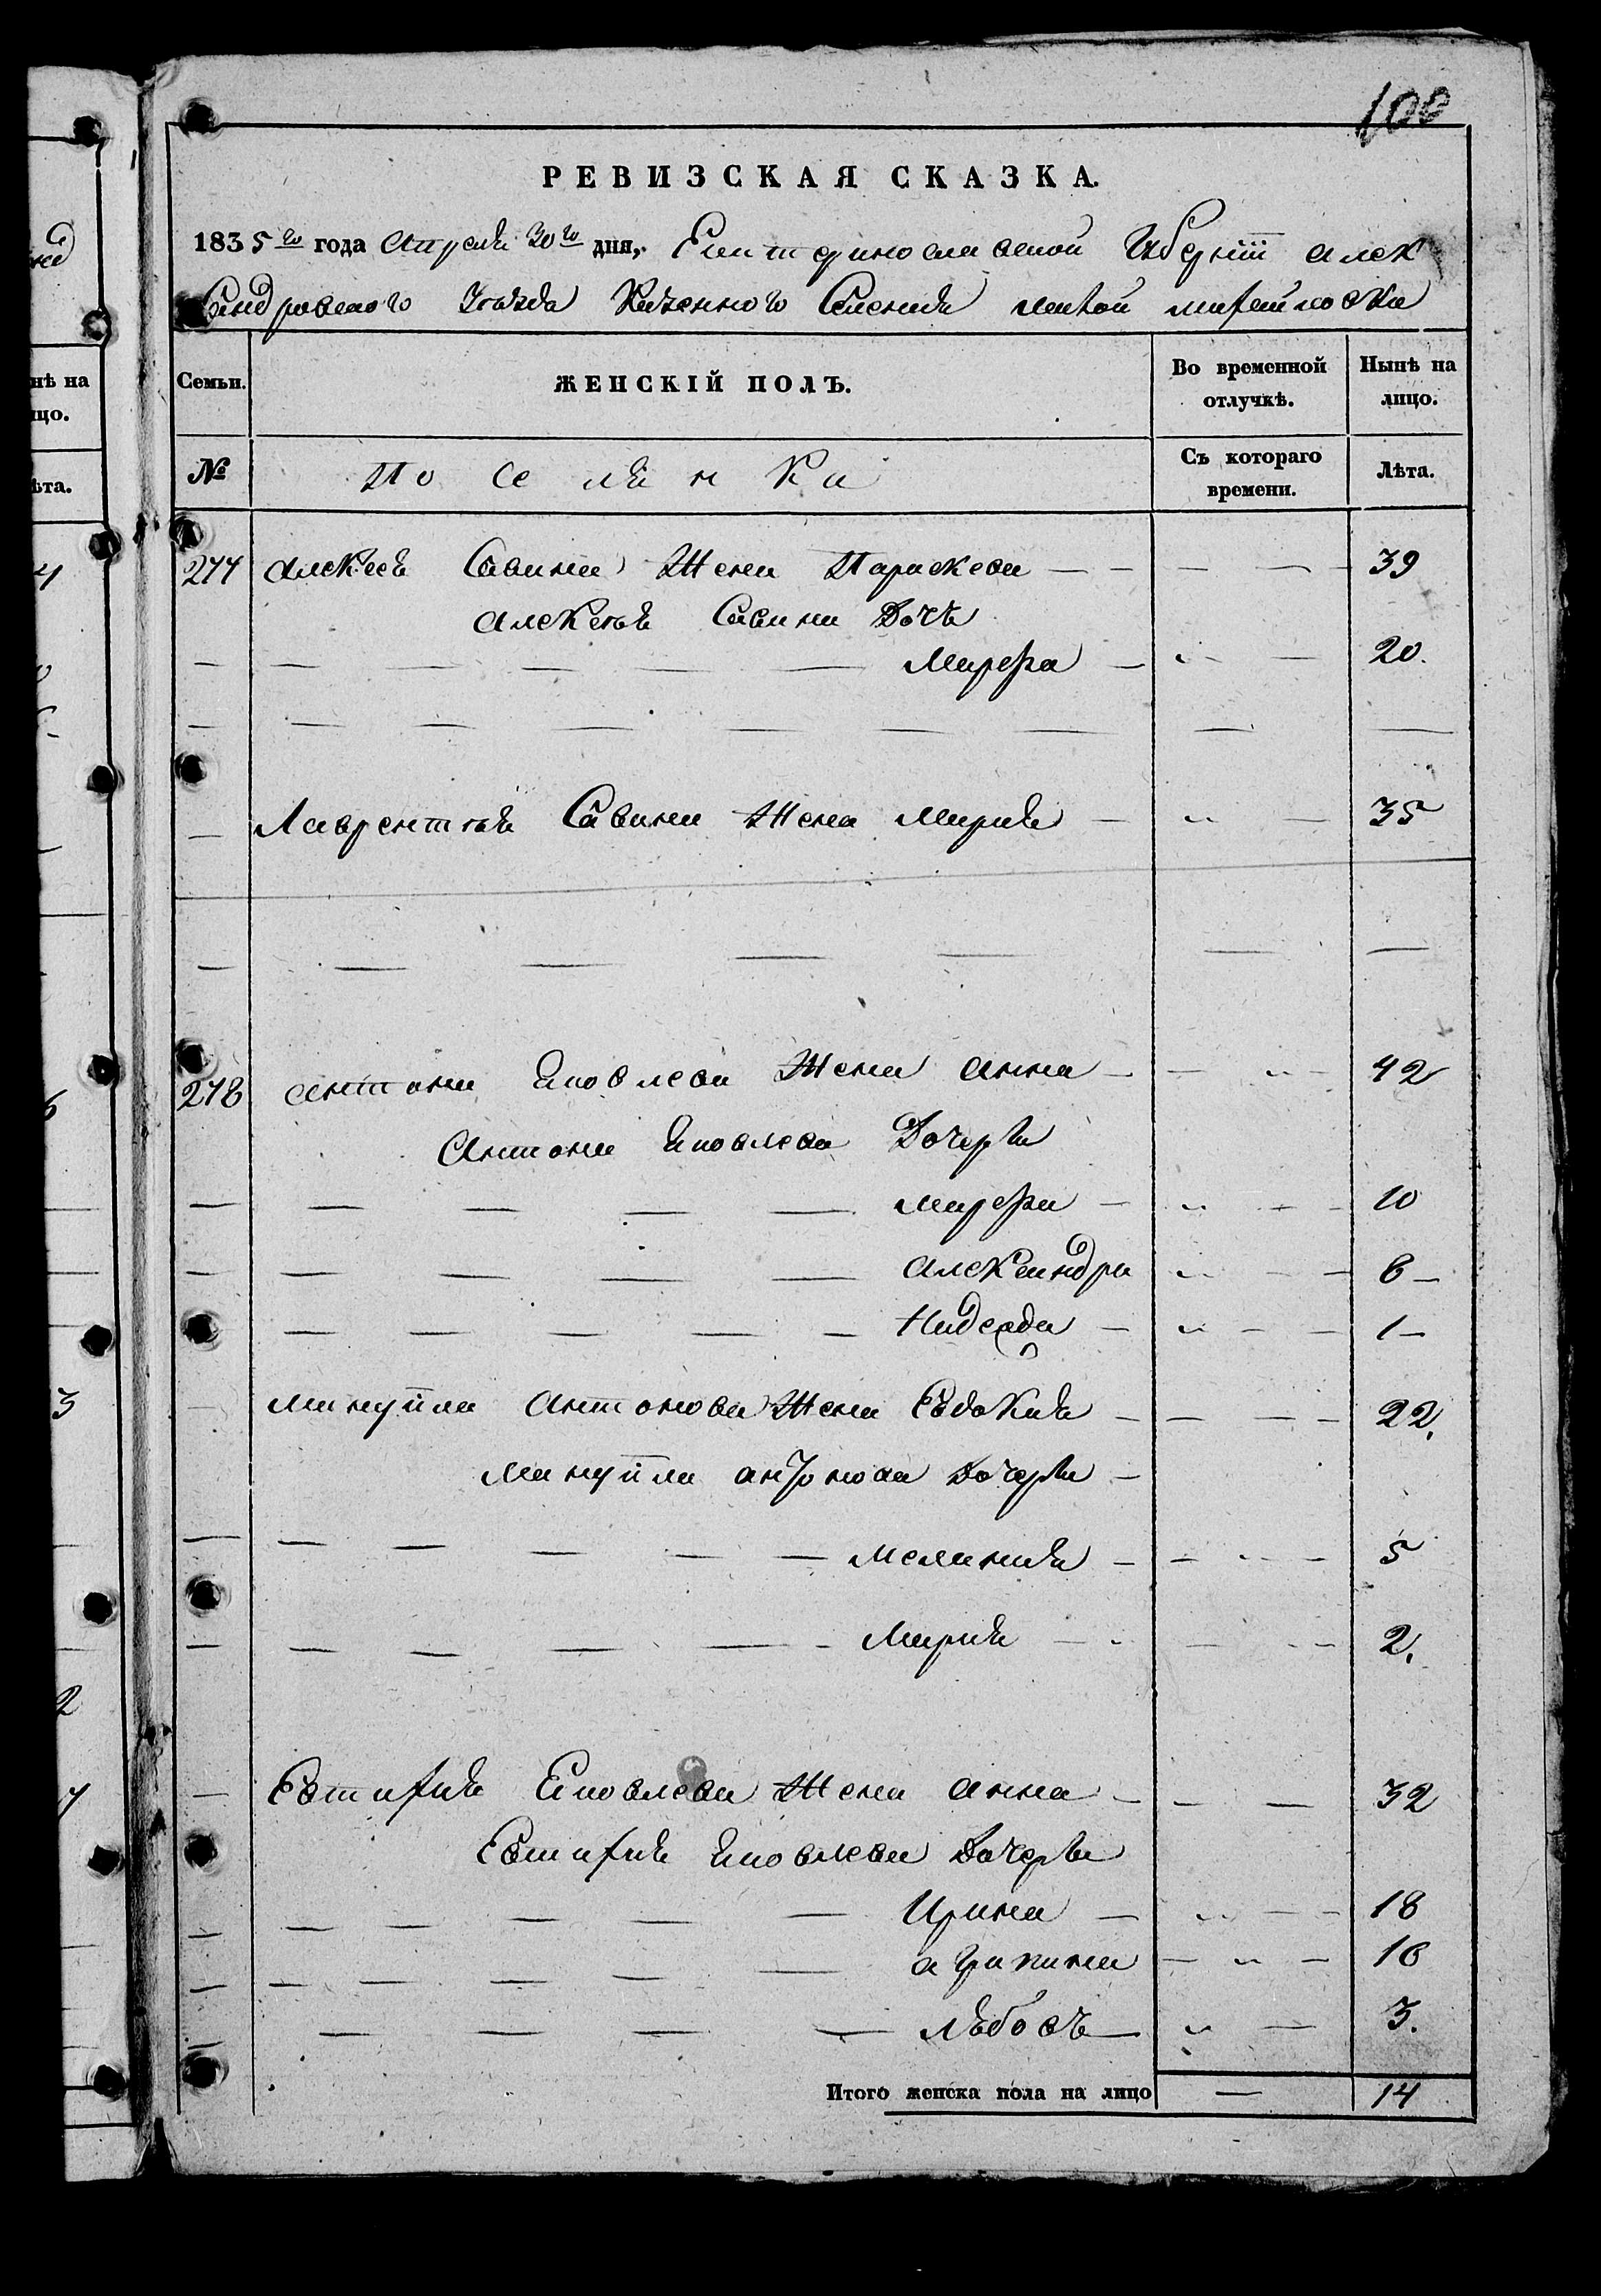 100
РЕВИЗСКАЯ СКАЗКА.
1835го года Апреля 30го дня, Екатеринославской Губернии Алек
сандровского Уезда Казенного Селения малой михайловки
Семьи. ЖЕНСКІЙ ПОЛЪ. Во временной отлучкѣ. Нынѣ на лицо.
№ Поселянки Съ котораго времени. Лѣта.
277 Алексея Савина Жена Параскева 39
Алексея Савина Дочь
Марфа 20.
Лаврентия Савина Жена Мария 35
278 Антона Яковлева Жена Анна 42
Антона Яковлева Дочери
Марфа 10
Александра 6
Надежда 1
Мануйла Антонова Жена Евдокия 22.
Мануйла Антонова Дочери
Мелания 5
Мария 2.
Евтихия Яковлева Жена Анна 32
Евтихия Яковлева Дочери
Ирина 18
Агрипина
Любовь 3.
Итого женска пола на лицо — 14
нѣ на
цо.
ѣта.
3
2